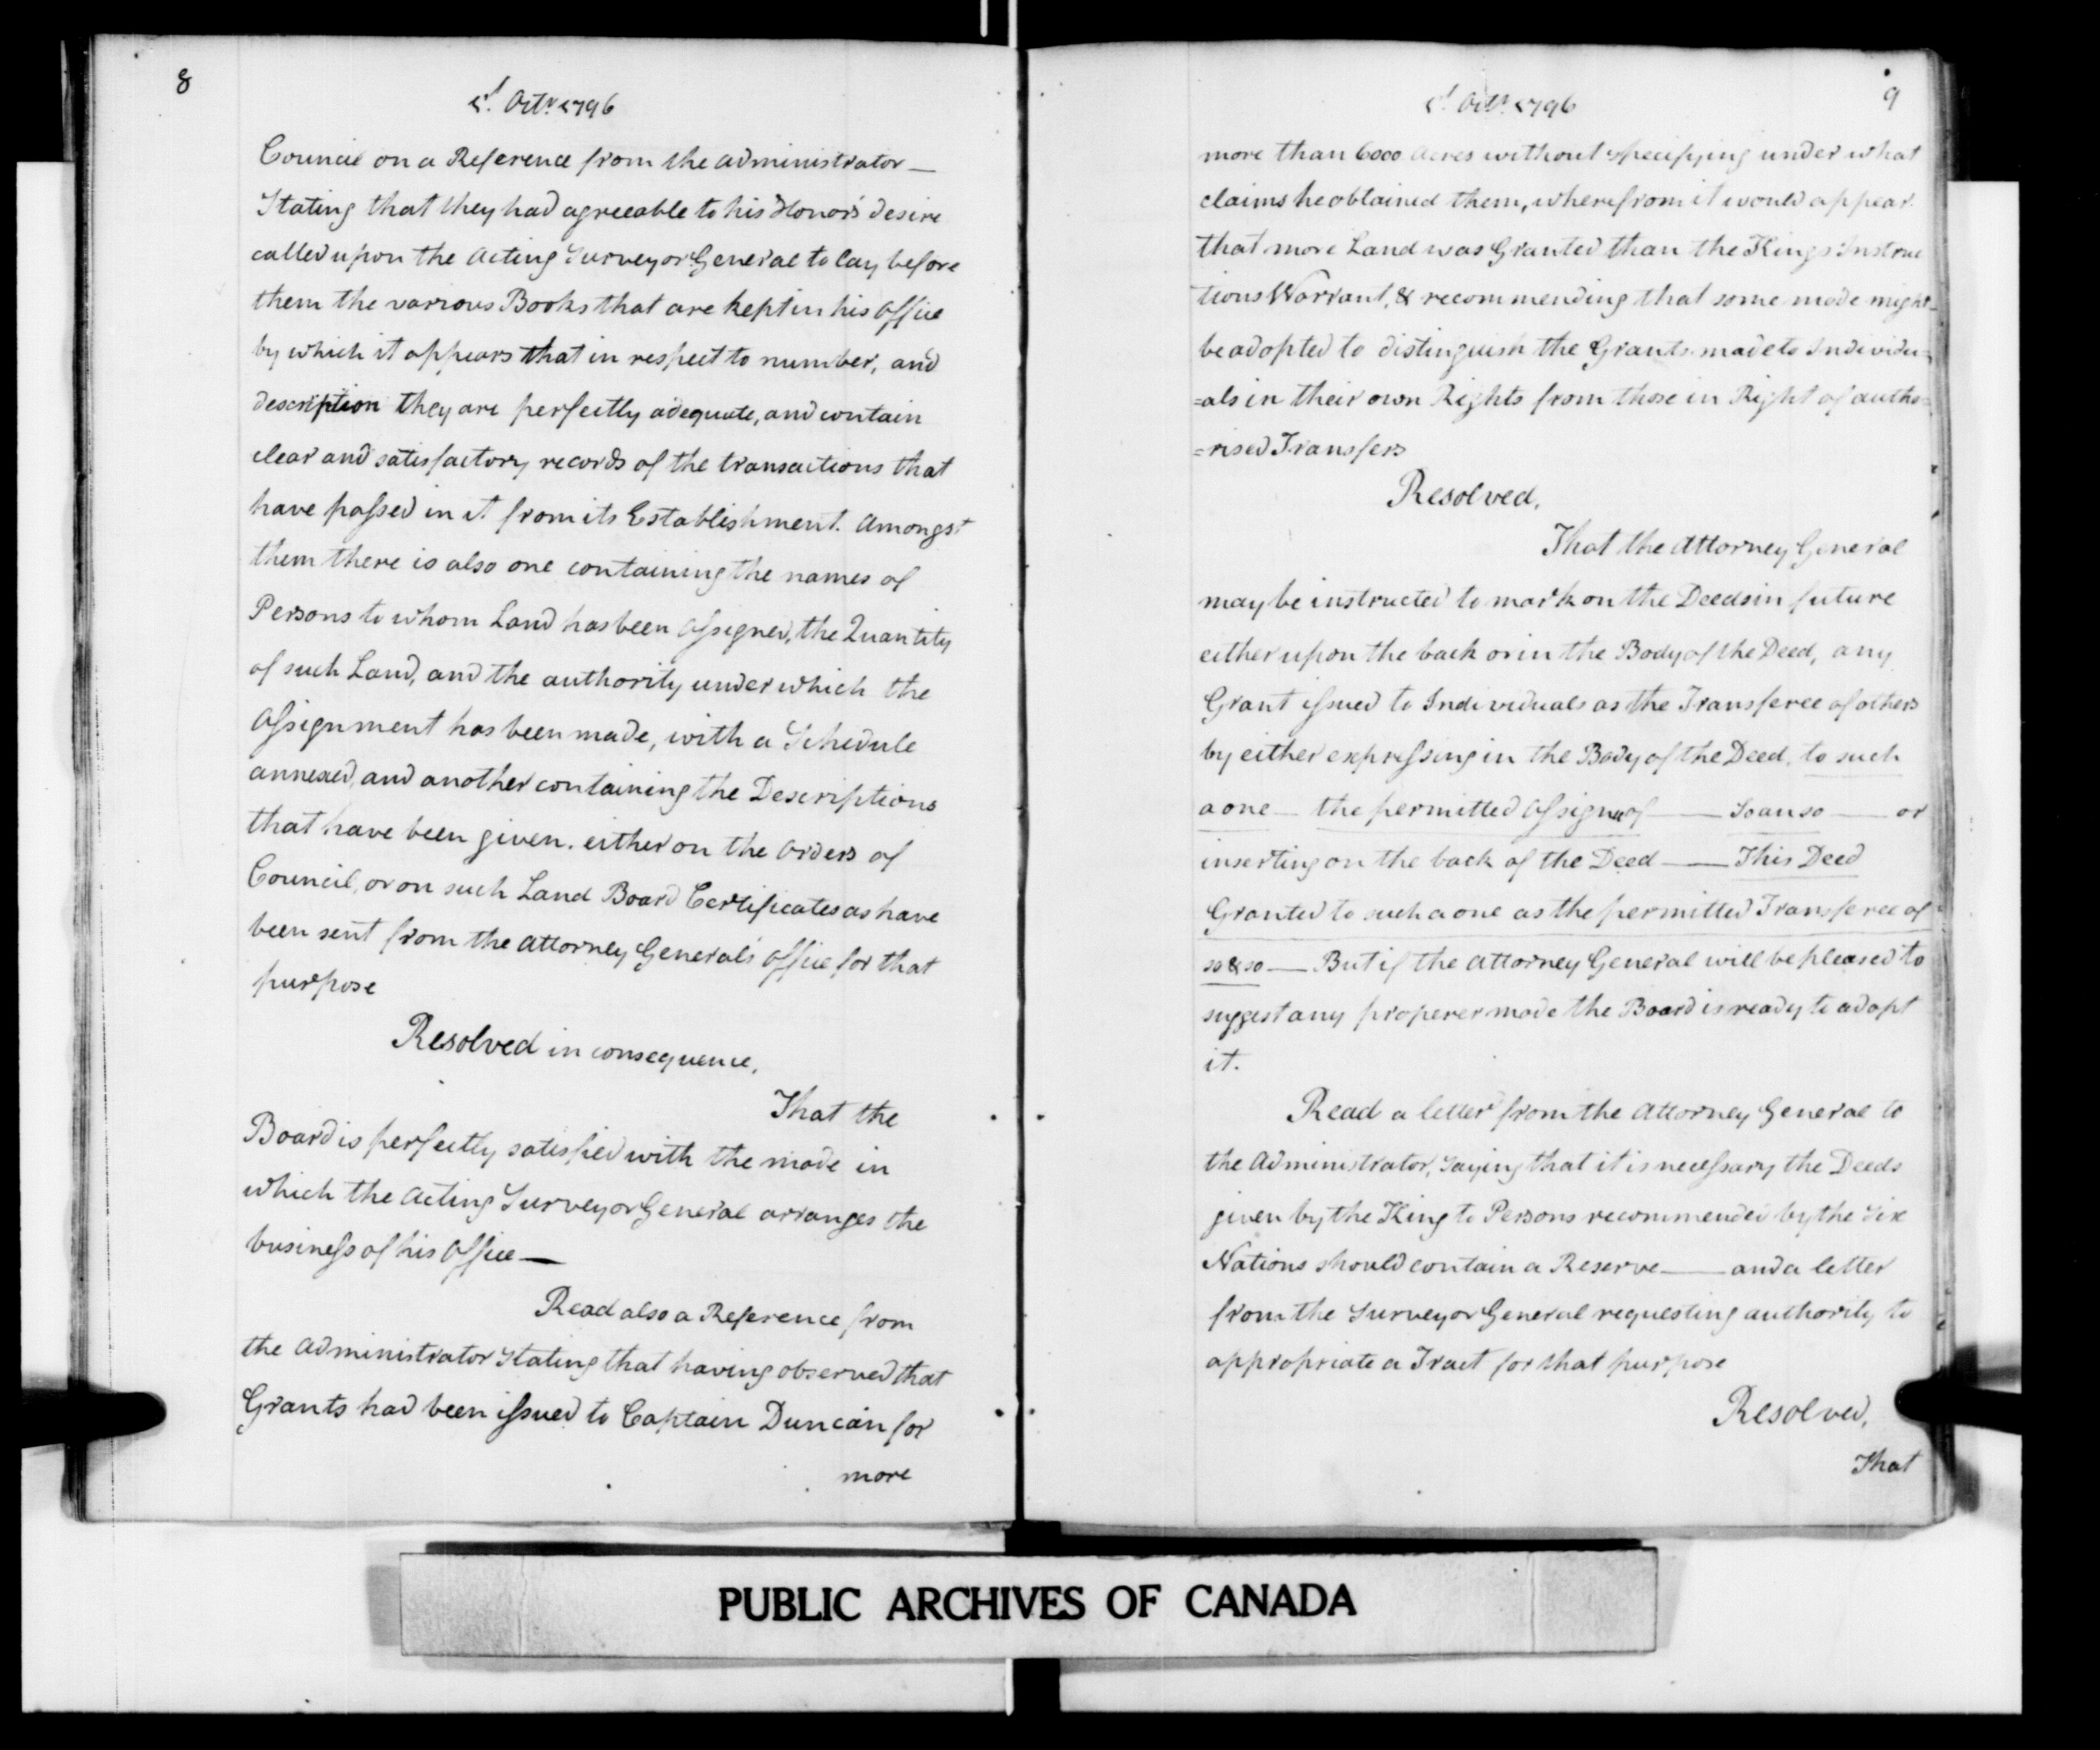 8
1st. Octr. 1796
Council on a Reference from the Administrator —
Stating that they had agreeable to his Honor's desire
called upon the Acting Surveyor General to lay before
them the various Books that are kept in his Office
by which it appears that in respect to number, and
description they are perfectly adequate, and contain
clear and satisfactory records of the transactions that
have passed in it from its Establishment. Amongst
them there is also one containing the names of
Persons to whom Land has been Assigned, the Quantity
of such Land, and the authority under which the
Assignment has been made, with a Schedule
annexed, and another containing the Descriptions
that have been given, either on the Orders of
Council, or on such Land Board Certificates as have
been sent from the Attorney General's Office for that
purpose
Resolved in consequence,
That the
Board is perfectly satisfied with the mode in
which the Acting Surveyor General arranges the
business of his Office —
Read also a Reference from
the Administrator Stating that having observed that
Grants had been issued to Captain Duncan for
more
9
1st. Octr. 1796
more than 6000 Acres without specifying under what
claims he obtained them, wherefrom it would appear
that more Land was Granted than the Kings Instruc
tions Warrant, & recommending that some mode might
be adopted to distinguish the Grants made to Individu=
=als in their own Rights from those in Right of autho=
=rised Transfers
Resolved,
That the Attorney General
may be instructed to mark on the Deeds in future
either upon the back or in the Body of the Deed, any
Grant issued to Individuals as the Transferee of others
by either expressing in the Body of the Deed, to such
a one — the permitted Assignee of — So an so — or
inserting on the back of the Deed — This Deed
Granted to such a one as the permitted Transferee of
so & so — But if the Attorney General will be pleased to
suggest any properer mode the Board is ready to adopt
it.
Read a letter from the Attorney General to
the Administrator, saying that it is necessary the Deeds
given by the King to Persons recommended by the Six
Nations should contain a Reserve — and a letter
from the Surveyor General requesting authority to
appropriate a Tract for that purpose
Resolved,
That
PUBLIC ARCHIVES OF CANADA